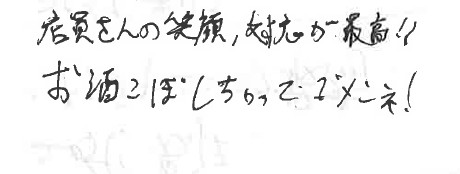 店員さんの笑顔,対応が最高!!
お酒こぼしちゃってゴメンネ!